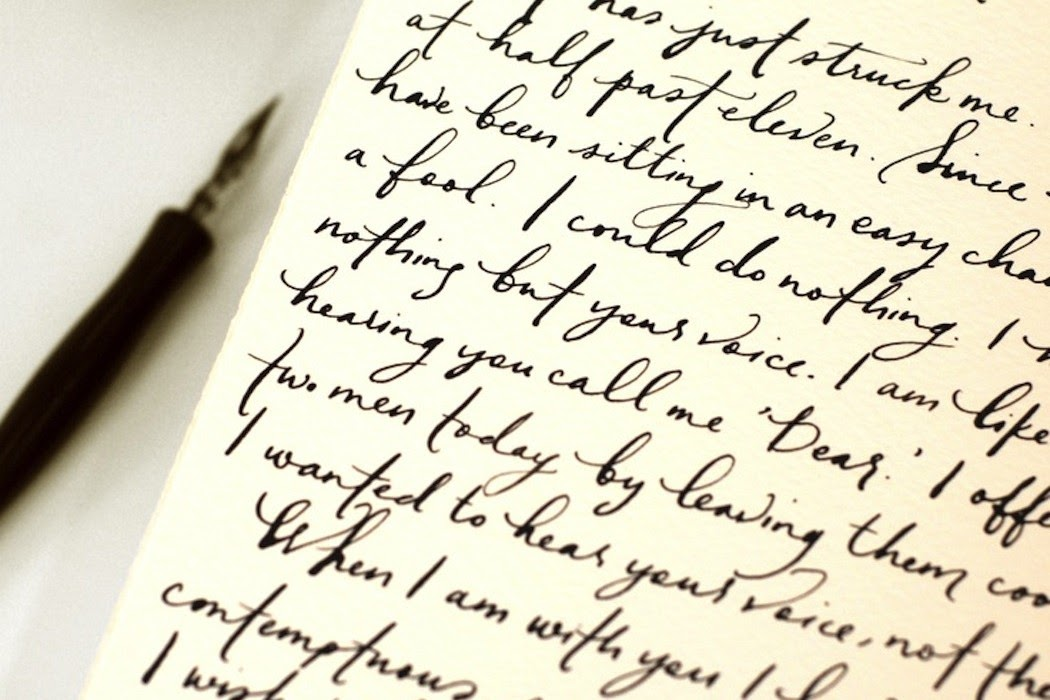 has just struck me.
at half past eleven. Since
have been sitting in an easy
a fool. I could do nothing. I
nothing but your voice. I am like
hearing you call me 'Dear.' I
two men today by leaving them
I wanted to hear your voice, not
When I am with you I
contemptuous
I wish